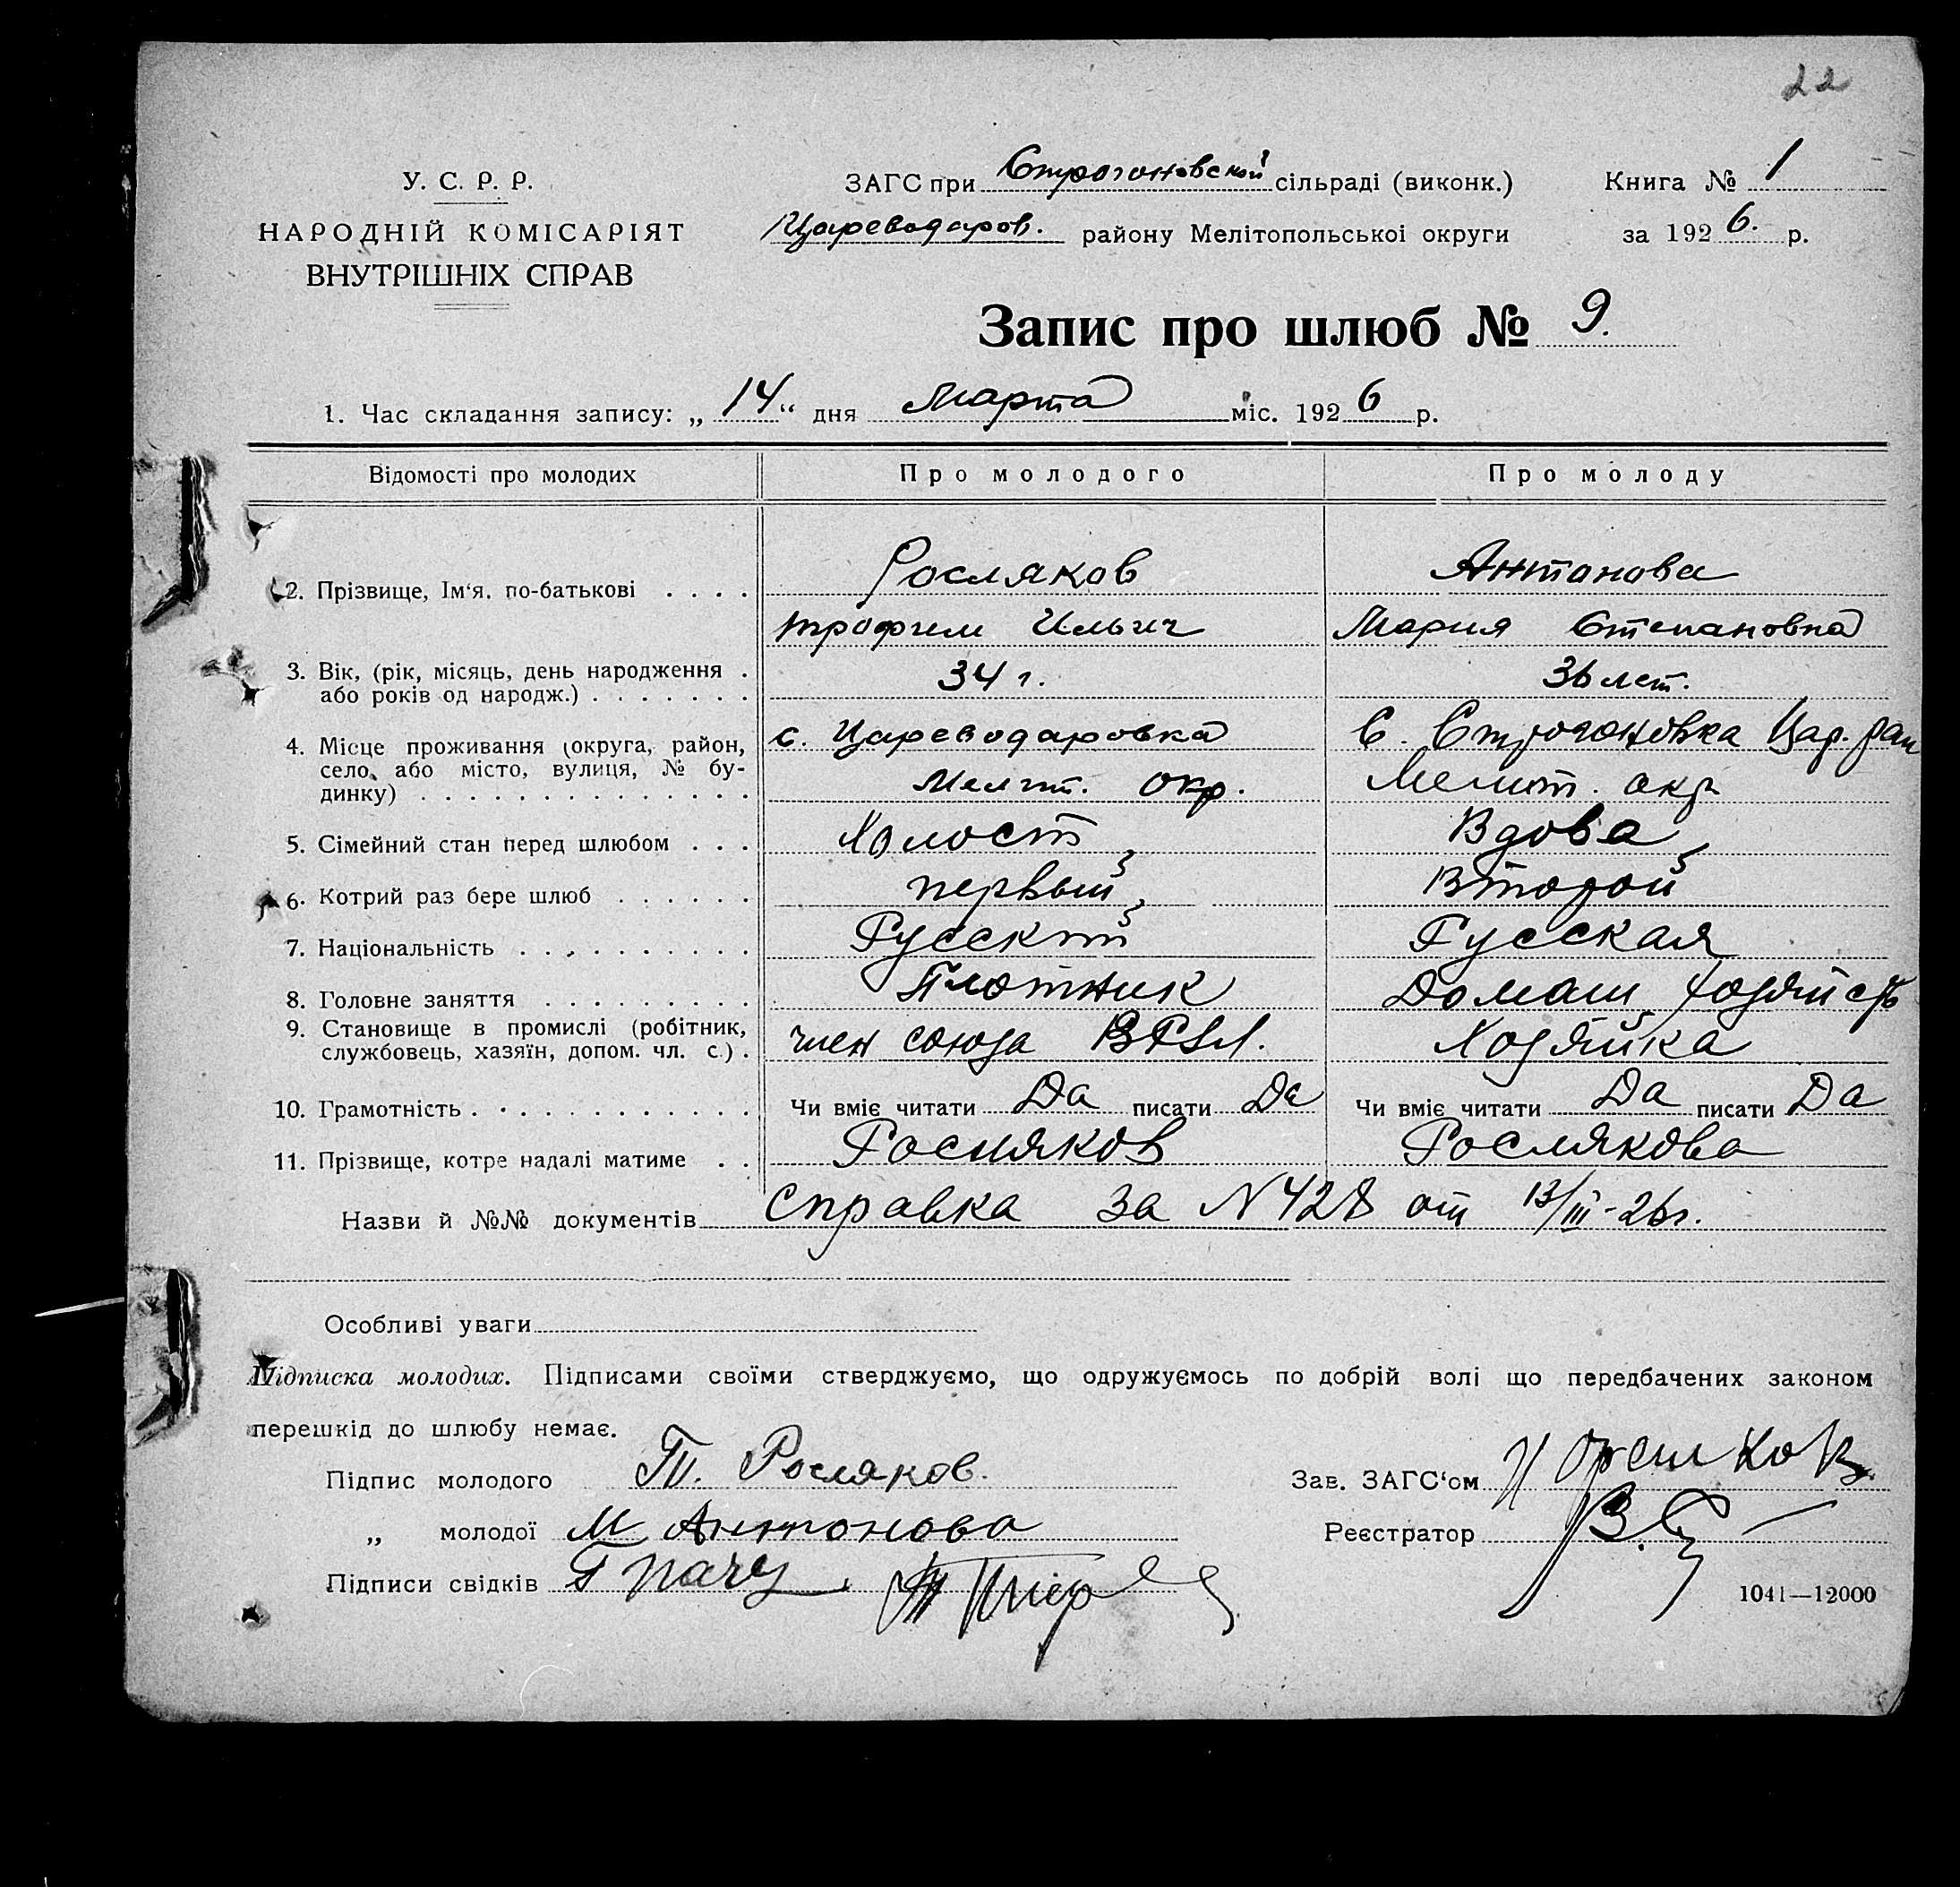 22
У. С. Р. Р.
НАРОДНІЙ КОМІСАРІЯТ
ВНУТРІШНІХ СПРАВ
ЗАГС при Строгоновской сільраді (виконк.)
Книга № 1
Цареводаров. району Мелітопольськоі округи
за 1926. р.
Запис про шлюб № 9.
1. Час складання запису: „14“ дня Марта міс. 1926 р.
Відомості про молодих Про молодого Про молоду
2. Прізвище, Ім‘я. по-батькові Росляков Антонова
Трофим Ильич Мария Степановна
3. Вік, (рік, місяць, день народження або років од народж.) 34 г. 36 лет.
4. Місце проживання (округа, район, село, або місто, вулиця, № будинку) с. Цареводаровка С. Строгоновка Цар. рай
Мелит. окр. Мелит. окр
5. Сімейний стан перед шлюбом Холост Вдова
6. Котрий раз бере шлюб первый Второй
7. Національність Русский Русская
8. Головне заняття Плотник Домаш хозяйств
9. Становище в промислі (робітник, службовець, хазяїн, допом. чл. с.) член союза Хозяйка
10. Грамотність Чи вміє читати Да писати Да Чи вміє читати Да писати Да
11. Прізвище, котре надалі матиме Росляков Рослякова
Назви й №№ документів справка за N 428 от 13/III-26г.
Особливі уваги
Підписка молодих. Підписами своїми стверджуємо, що одружуємось по добрій волі що передбачених законом
перешкід до шлюбу немає.
Підпис молодого Т. Росляков.
Зав. ЗАГС‘ом
„ молодої М Антонова
Реєстратор
Підписи свідків
1041—12000